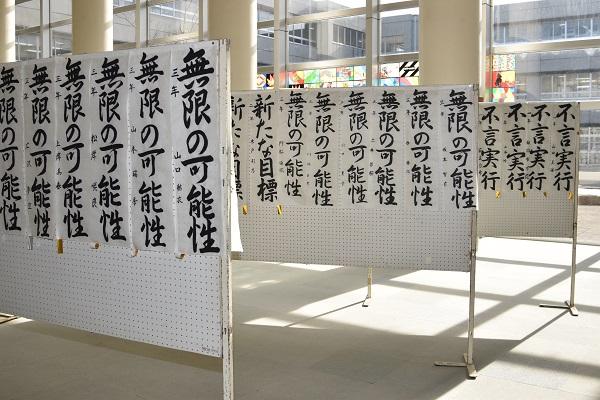 無限の可能性
三年
無限の可能性
三年
無限の可能性
三年
無限の可能性
三年
無限の可能性
三年 山本
無限の可能性
三年 山口
新たな目標
新たな目標
無限の可能性
無限の可能性
無限の可能性
無限の可能性
無限の可能性
無限の可能性
不言実行
不言実行
不言実行
不言実行